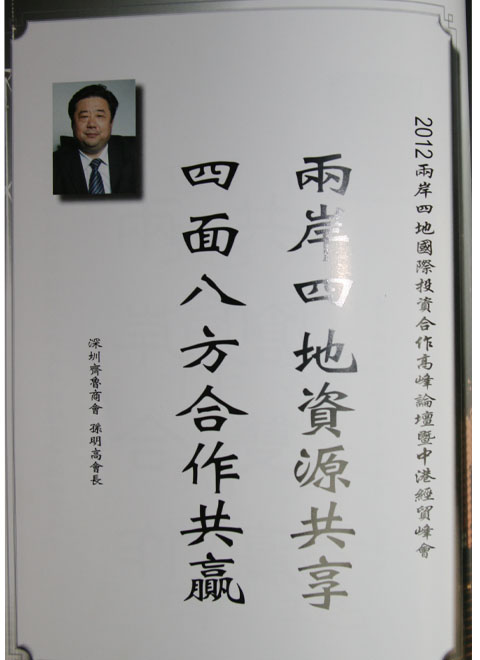 2012兩岸四地國際投資合作高峰論壇暨中港經貿峰會
兩岸四地資源共享
四面八方合作共贏
深圳齊魯商會 孫明高會長